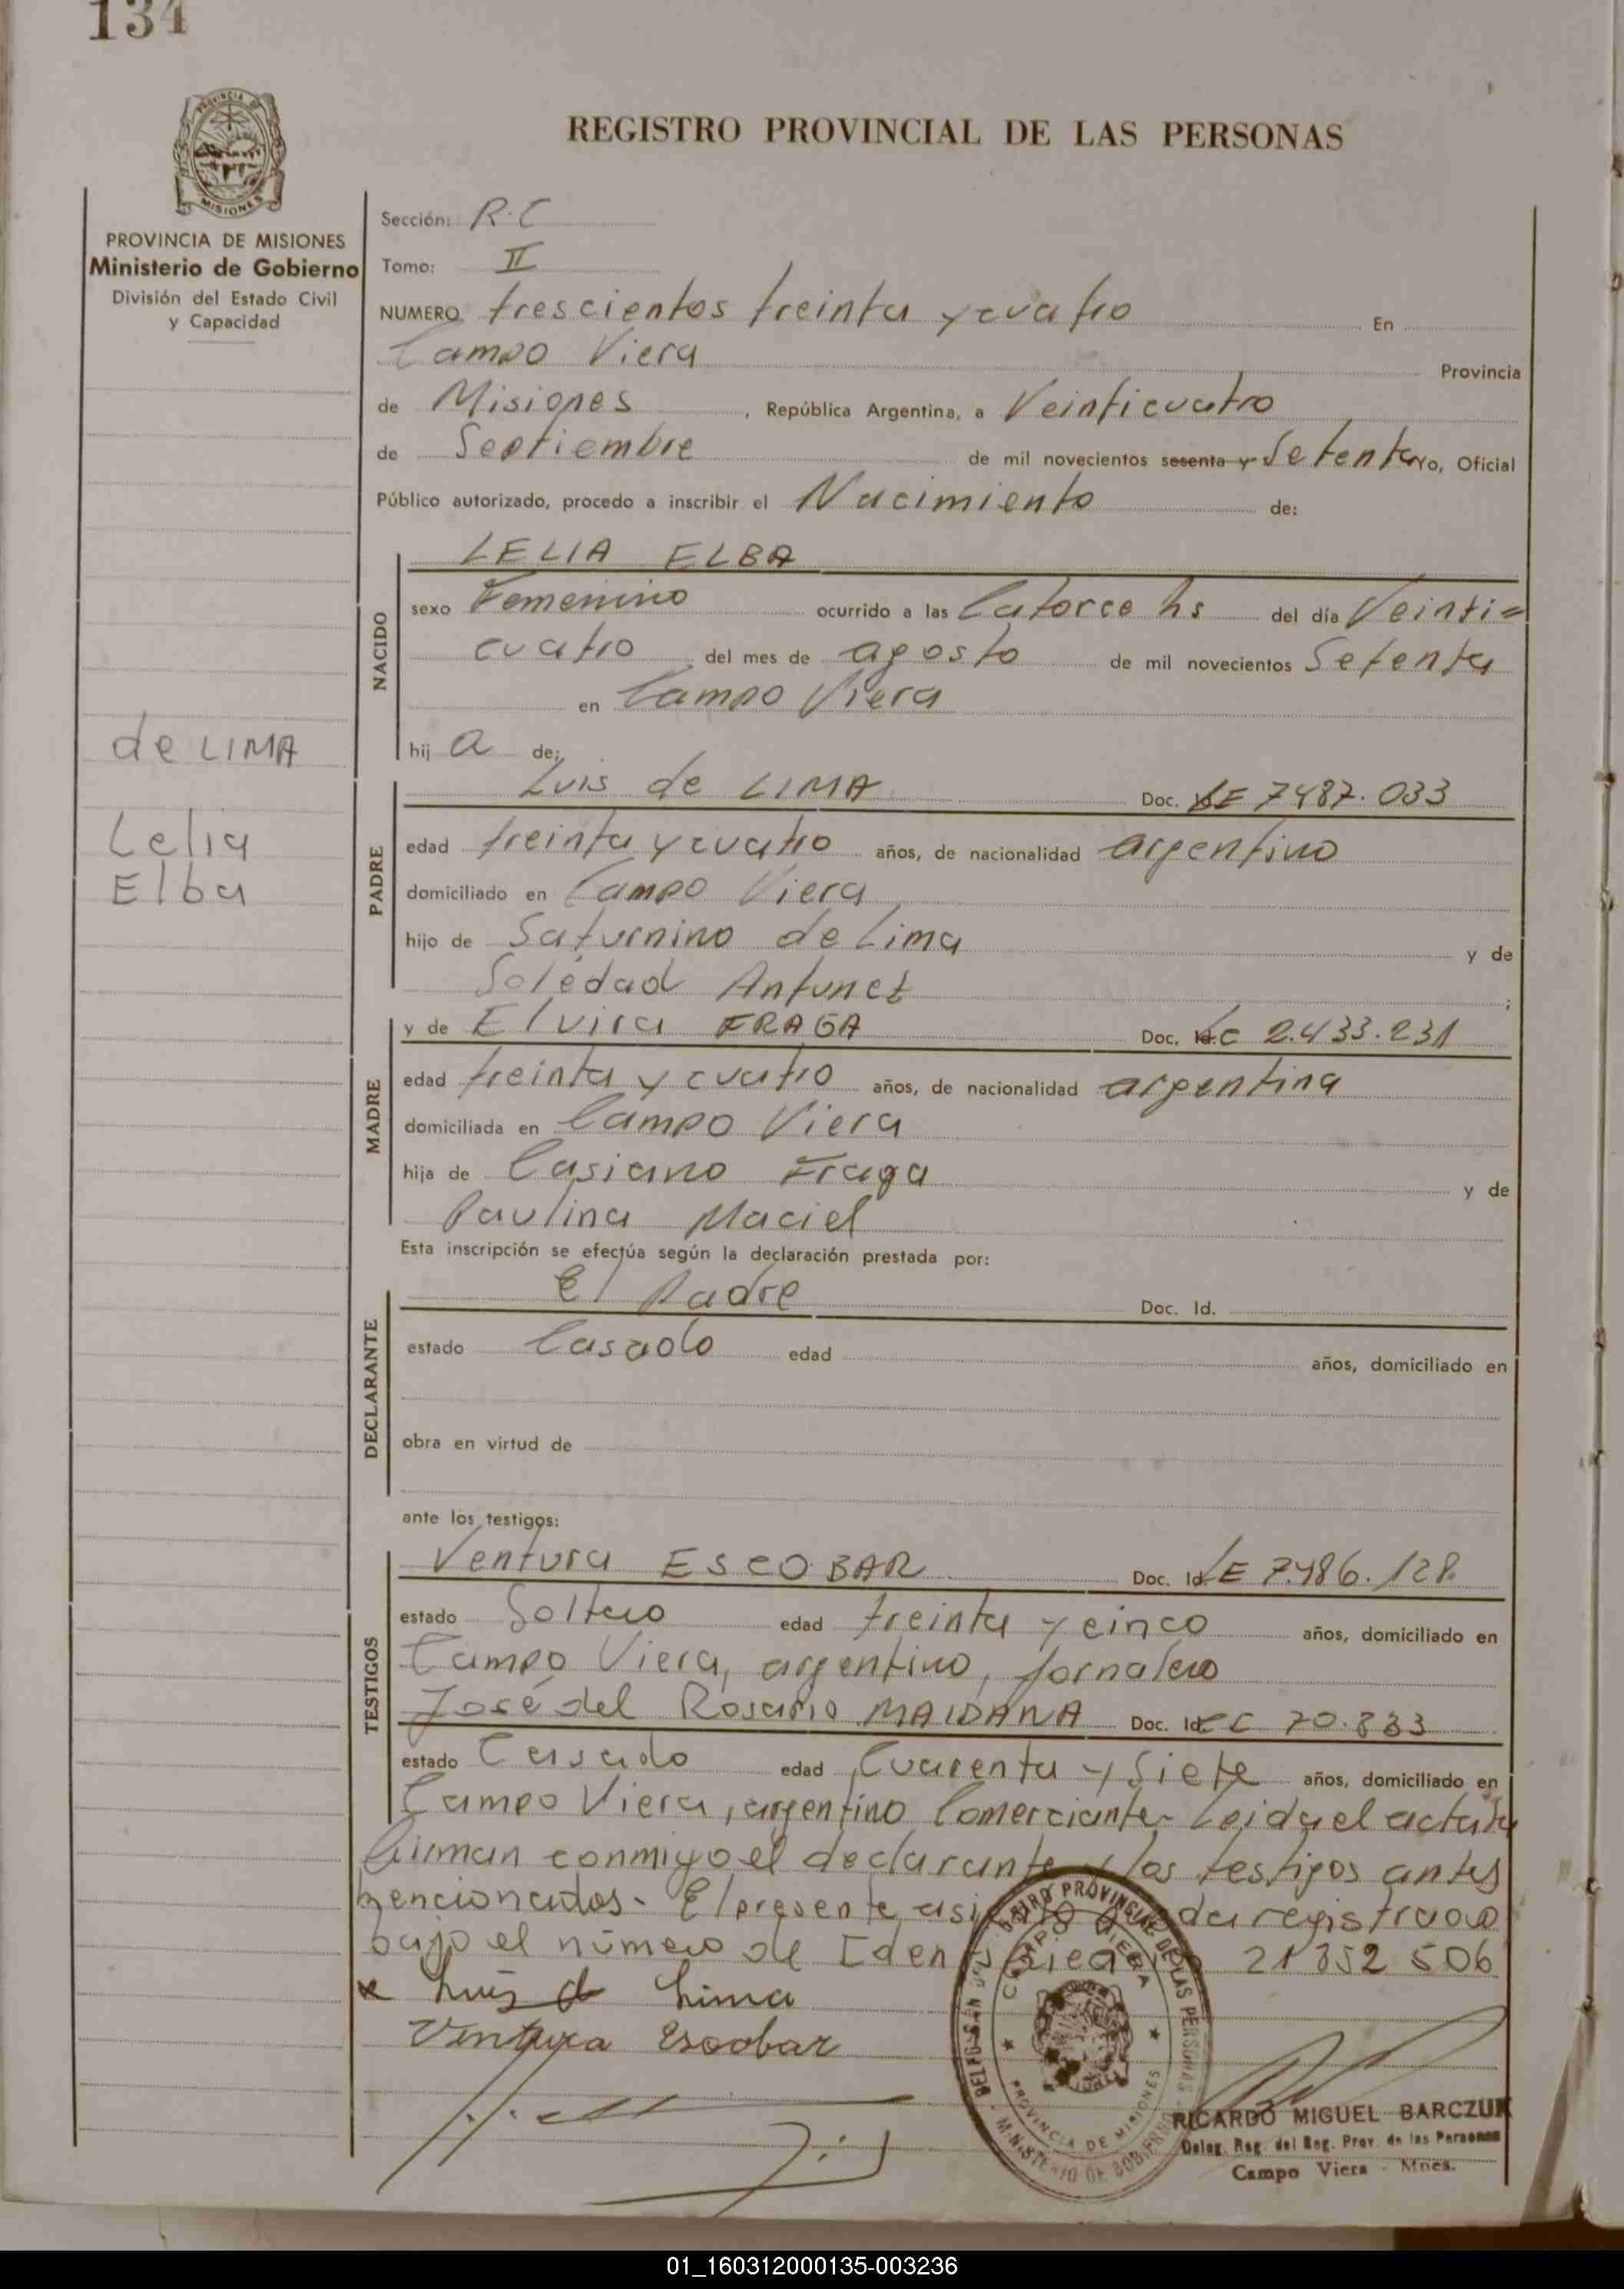 134
PROVINCIA DE
MISIONES
PROVINCIA DE MISIONES
Ministerio de Gobierno
División del Estado Civil
y Capacidad
REGISTRO PROVINCIAL DE LAS PERSONAS
Sección: R.C
Tomo: II
NUMERO trescientos treinta y cuatro En
Campo Viera Provincia
de Misiones, República Argentina, a Veinticuatro
de Septiembre de mil novecientos sesenta y Setenta Yo, Oficial
Público autorizado, procedo a inscribir el Nacimiento de:
NACIDO
LELIA ELBA
sexo Femenino ocurrido a las Catorce hs del día Veinti=
cuatro del mes de agosto de mil novecientos Setenta
en Campo Viera
hij a de;
de LIMA
Lelia
Elba
PADRE
Luis de LIMA Doc. LE 7487.033
edad treinta y cuatro años, de nacionalidad argentino
domiciliado en Campo Viera
hijo de Saturnino de Lima y de
Soledad Antunez ;
MADRE
y de Elvira FRAGA Doc. LC 2.433.231
edad treinta y cuatro años, de nacionalidad argentina
domiciliada en Campo Viera
hija de Casiano Fraga y de
Paulina Maciel
Esta inscripción se efectúa según la declaración prestada por:
DECLARANTE
El Padre Doc. Id.
estado Casado edad años, domiciliado en
obra en virtud de
ante los testigos:
TESTIGOS
Ventura ESCOBAR Doc. Id. LE 7.486.128.
estado Soltero edad treinta y cinco años, domiciliado en
Campo Viera, argentino, jornalero
José del Rosario MAIDANA Doc. Id. 70.883
estado Casado edad Cuarenta y Siete años, domiciliado en
Campo Viera, argentino Comerciante- Leida el acta
firman conmigo el declarante y los testigos antes
mencionados- El presente registrado
bajo el número de 21 352 506
Luis de Lima
Ventura Escobar
REGISTRO PROVINCIAL DE LAS PERSONAS
CAMPO VIERA
PROVINCIA DE MISIONES
MINISTERIO DE GOBIERNO
RICARDO MIGUEL BARCZUK
Deleg. Reg. del Reg. Prov. de las Personas
Campo Viera - Mnes.
01_160312000135-003236